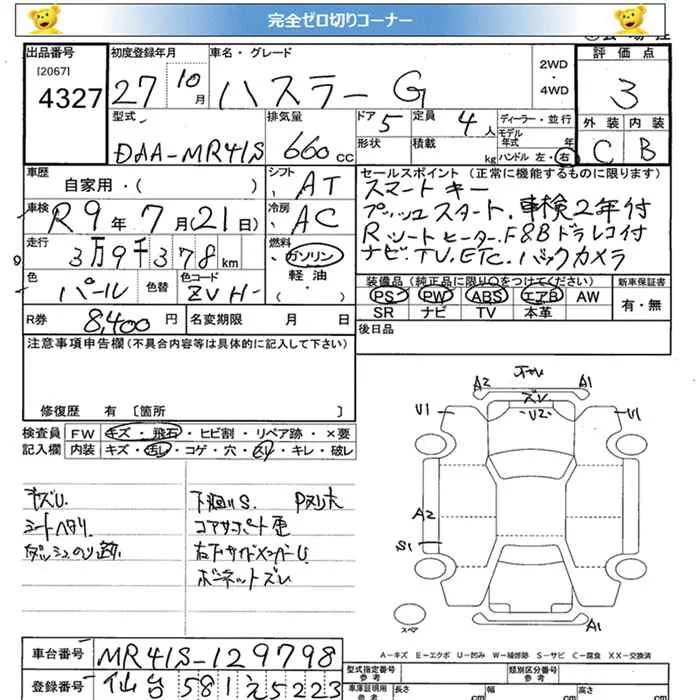 完全ゼロ切りコーナー
出品番号 初度登録年月 車名・グレード 2WD ・ 4WD 評価点
[2067]
4327 27 10月 ハスラー G 3
型式 排気量 ドア 5 定員 4人 ディーラー・並行 外装 内装
DAA-MR41S 660cc 形状 積載 kg モデル年式 年 ハンドル 左・右 C B
車歴 シフト セールスポイント (正常に機能するものに限ります)
自家用・( ) AT スマートキー
車検 R9年7月(21日) 冷房 AC プッシュスタート. 車検2年付
走行 燃料 Rシートヒーター. F&Bドラレコ付
3万9千378km ガソリン ナビ. TV. ETC. バックカメラ
色 色替 色コード 軽油 装備品 (純正品に限り○をつけてください) 新車保証書
パール ZVH- ・( ) PS PW ABS エアB AW 有・無
SR ナビ TV 本革
R券 8,400円 名変期限 月 日 後日品
注意事項申告欄 (不具合内容等は具体的に記入して下さい)
修復歴 有 〔箇所 〕
検査員 FW キズ・飛石・ヒビ割・リペア跡・×要
記入欄 内装 キズ・汚レ・コゲ・穴・スレ・キレ・破レ
キズU. 下廻りS.
シートヘタリ. コアサポート歪
ダッシュのり跡. 右下サイドメンバーU
ボーネットズレ
A2 A1
ズレ
U1 U2 U1
A2
S1
スペア A1
A−キズ E−エクボ U−凹み W−補修跡 S−サビ C−腐食 XX−交換済
車台番号 MR41S-129798 型式指定番号 参考 類別区分番号 参考
登録番号 仙台 581 え 5223 車庫証明用 参考 長さ 幅 高さ